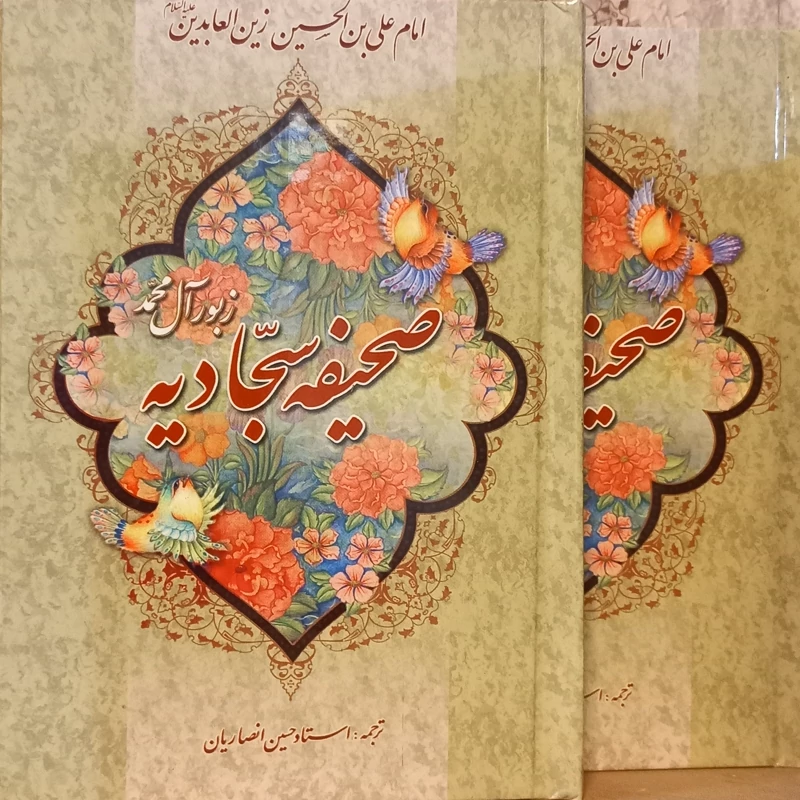 امام علی بن الحسین زین العابدین علیه‌السلام
زبور آل محمّد
صحیفه سجّادیه
ترجمه: استاد حسین انصاریان
امام علی بن الح
صحیف
ترجمه: اس